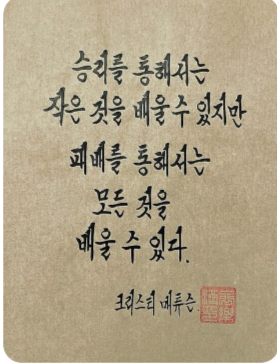 승리를 통해서는
작은 것을 배울 수 있지만
패배를 통해서는
모든 것을
배울 수 있다.
크리스티 매튜슨